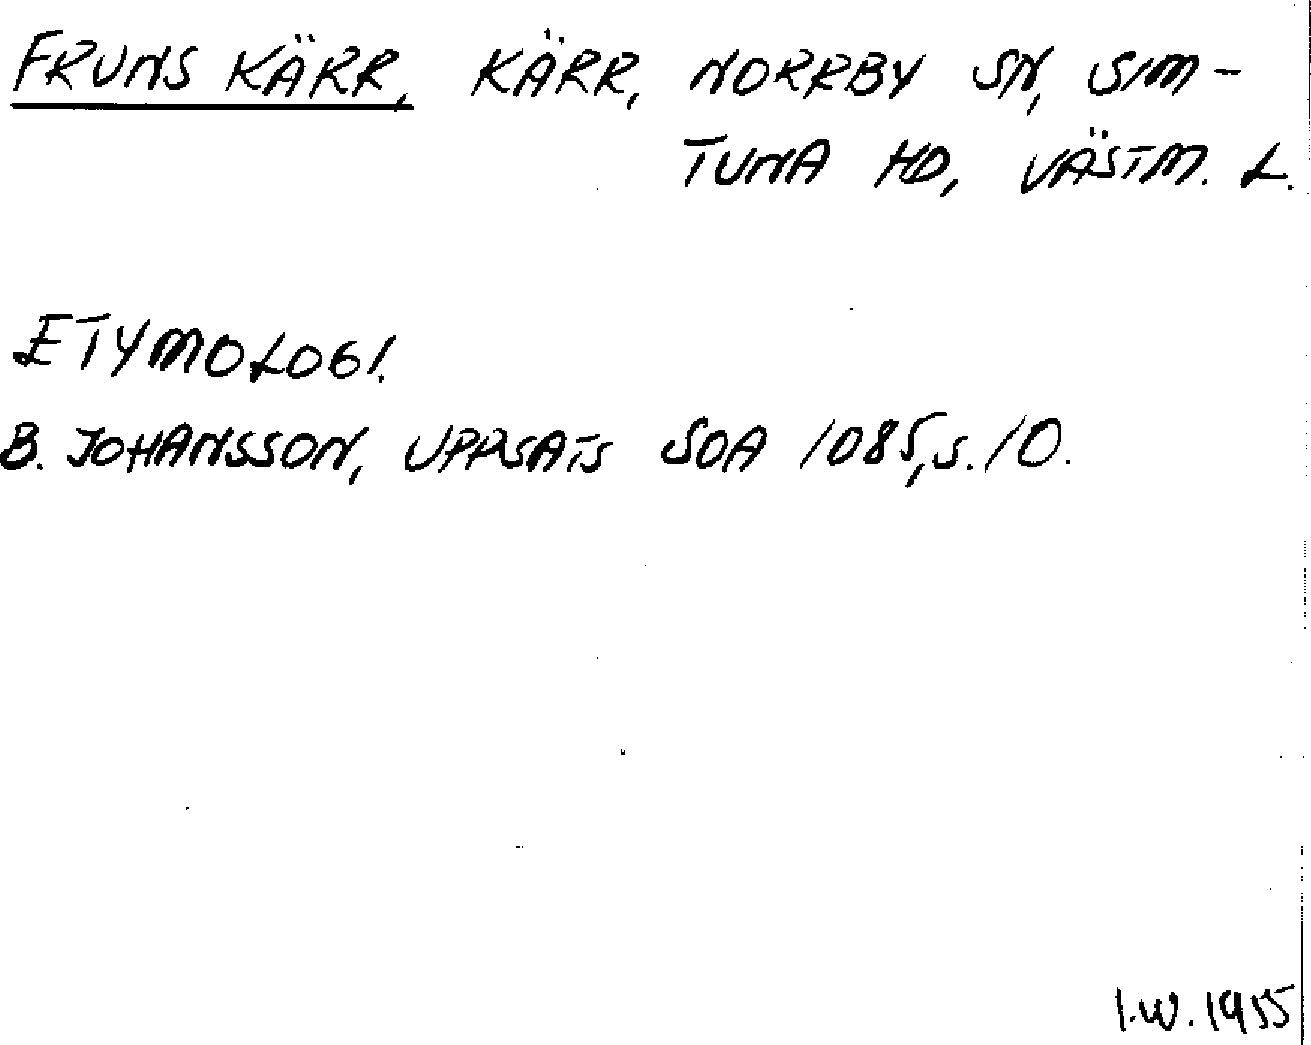 FRUNS KÄRR, KÄRR, NORRBY SN, SIM-
TUNA HD, VÄSTM. L.
ETYMOLOGI.
B. JOHANSSON, UPPSATS SOA 1085, S. 10.
I.W. 1955